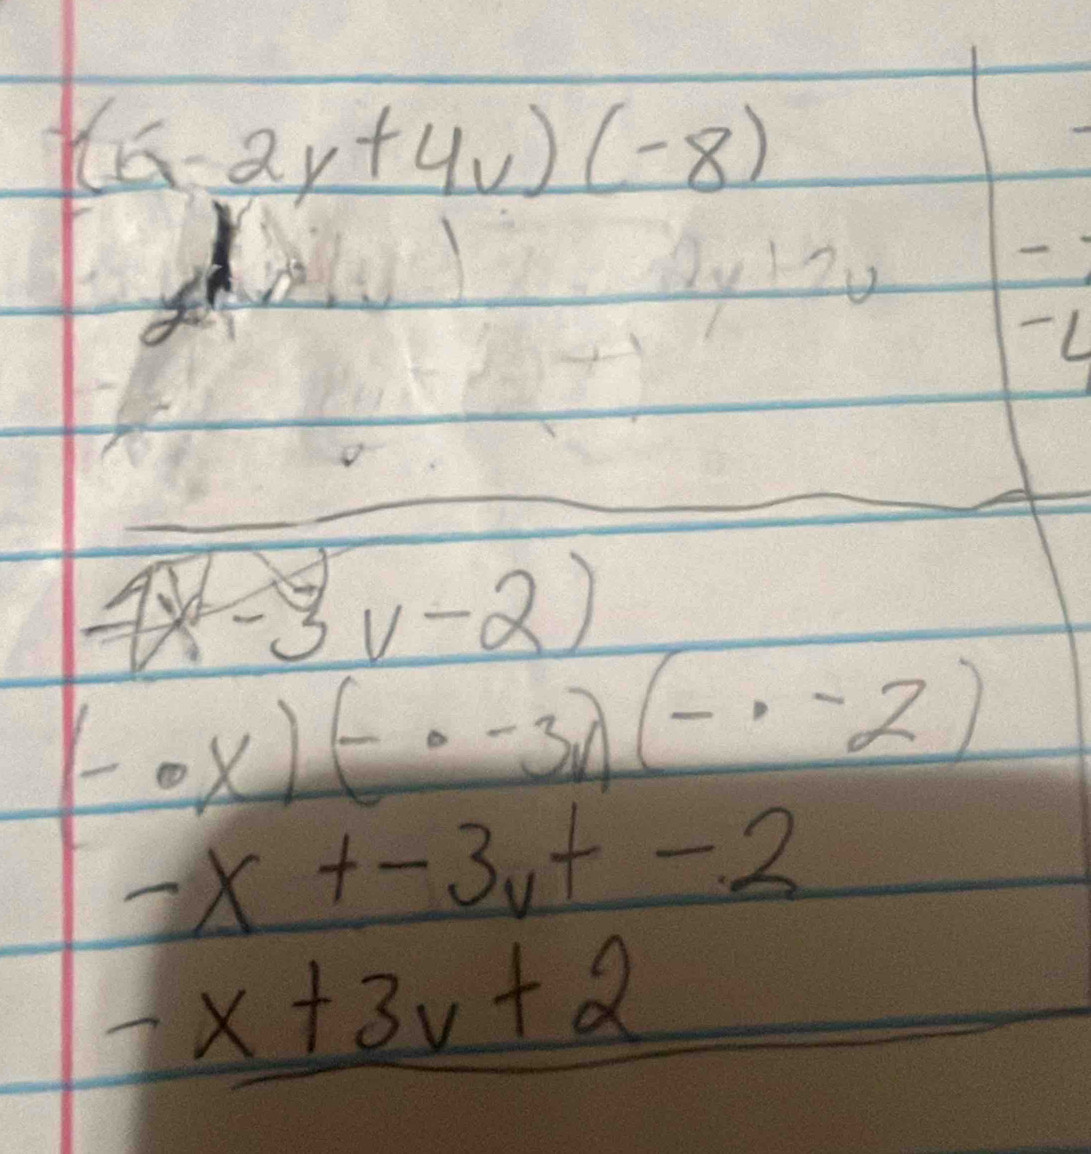 (6-2y+4v)(-8)
2y+2v
-(x-3v-2)
(-•x)(-•-3v)(-•-2)
-x+-3v+-2
-x+3v+2